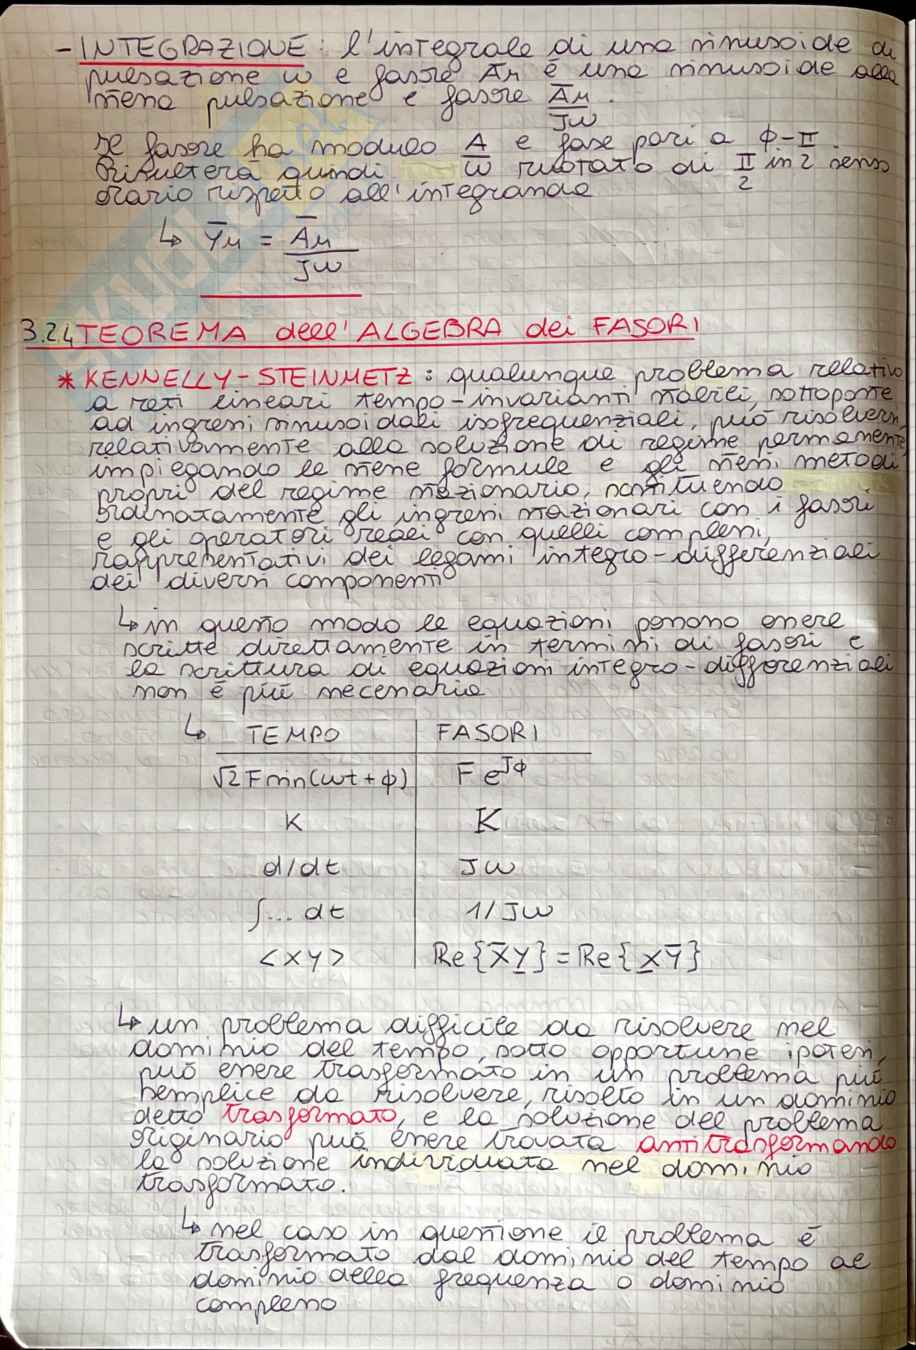 - INTEGRAZIONE: l'integrale di una sinusoide di
pulsazione ω e fasore A̅M è una sinusoide alla
stessa pulsazione e fasore A̅M/Jω.
Il fasore ha modulo A/ω e fase pari a φ-π/2.
Risulterà quindi ruotato di π/2 in senso
orario rispetto all'integranda
↳ Y̅M = A̅M/Jω
3.2.4 TEOREMA dell'ALGEBRA dei FASORI
* KENNELLY-STEINMETZ: qualunque problema relativo
a reti lineari tempo-invarianti stabili, sottoposte
ad ingressi sinusoidali isofrequenziali, può risolversi,
relativamente alla soluzione di regime permanente,
impiegando le stesse formule e gli stessi metodi
propri del regime stazionario, sostituendo
ordinatamente gli ingressi stazionari con i fasori
e gli operatori reali con quelli complessi,
rappresentativi dei legami integro-differenziali
dei diversi componenti
↳ in questo modo le equazioni possono essere
scritte direttamente in termini di fasori e
la scrittura di equazioni integro-differenziali
non è più necessaria
↳ TEMPO FASORI
√2 F sin(ωt+φ) F e^Jφ
K K
d/dt Jω
∫... dt 1/Jω
<XY> Re{X̅Y̲} = Re{X̲Y̅}
↳ un problema difficile da risolvere nel
dominio del tempo, sotto opportune ipotesi,
può essere trasformato in un problema più
semplice da risolvere, risolto in un dominio
detto trasformato, e la soluzione del problema
originario può essere trovata antitrasformando
la soluzione individuata nel dominio
trasformato.
↳ nel caso in questione il problema è
trasformato dal dominio del tempo al
dominio della frequenza o dominio
complesso